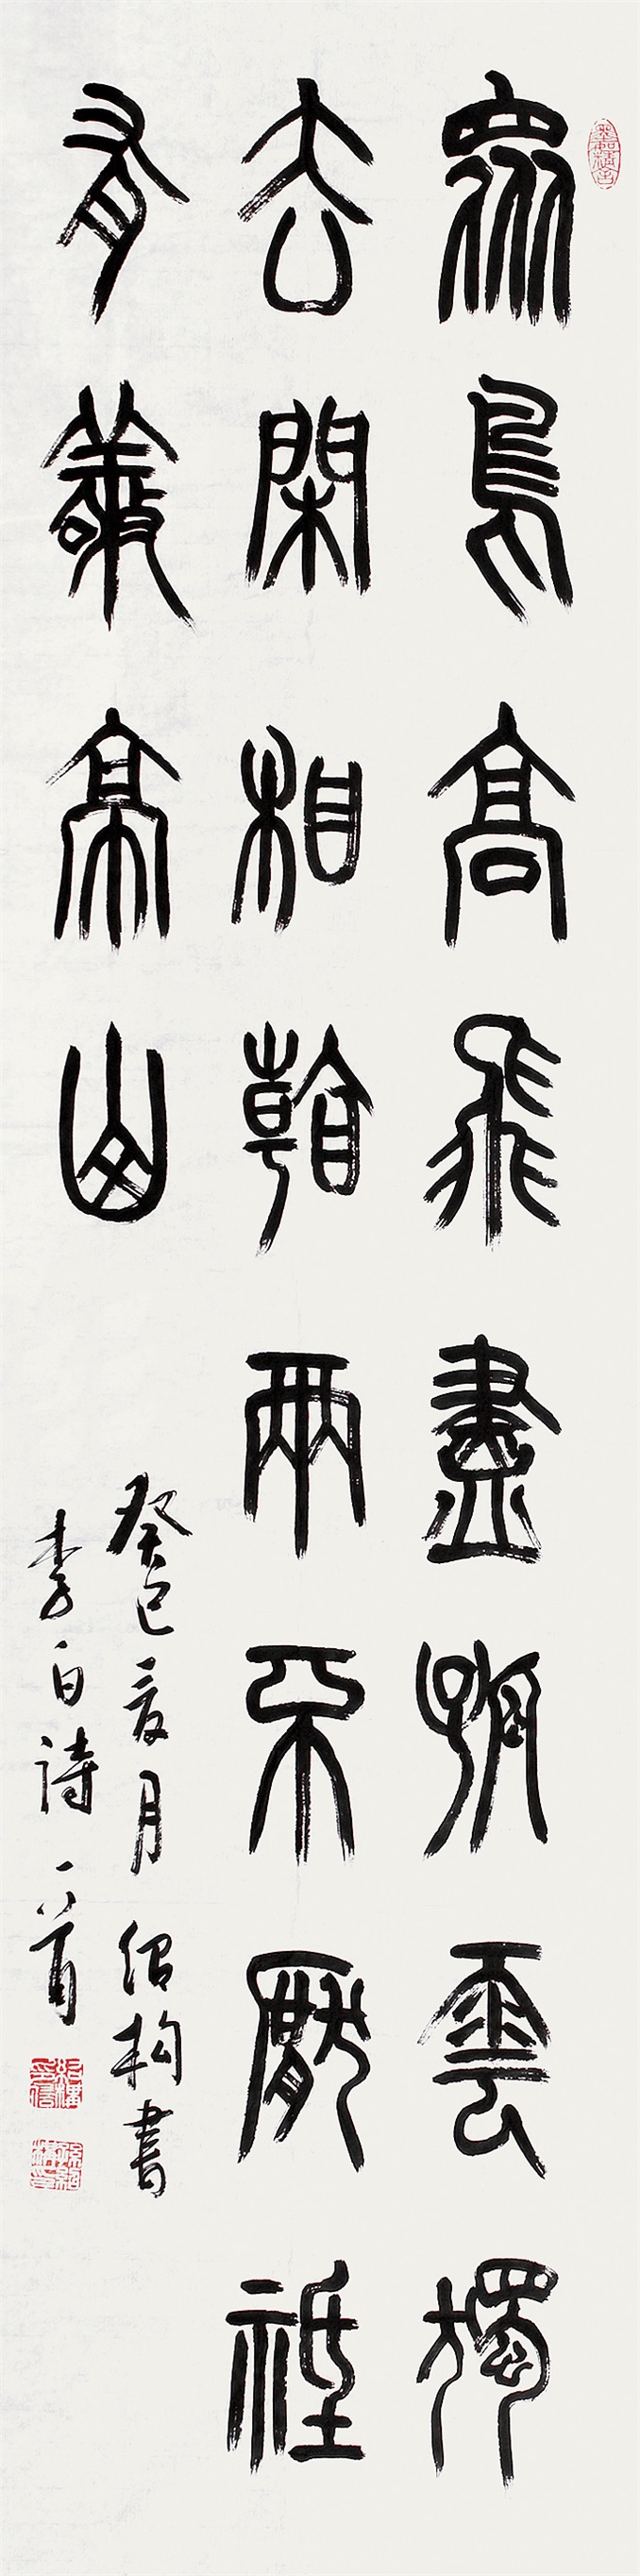 眾鳥高飛盡孤雲獨
去閑相看兩不厭祗
有敬亭山
癸巳夏月 紹构書
李白詩一首